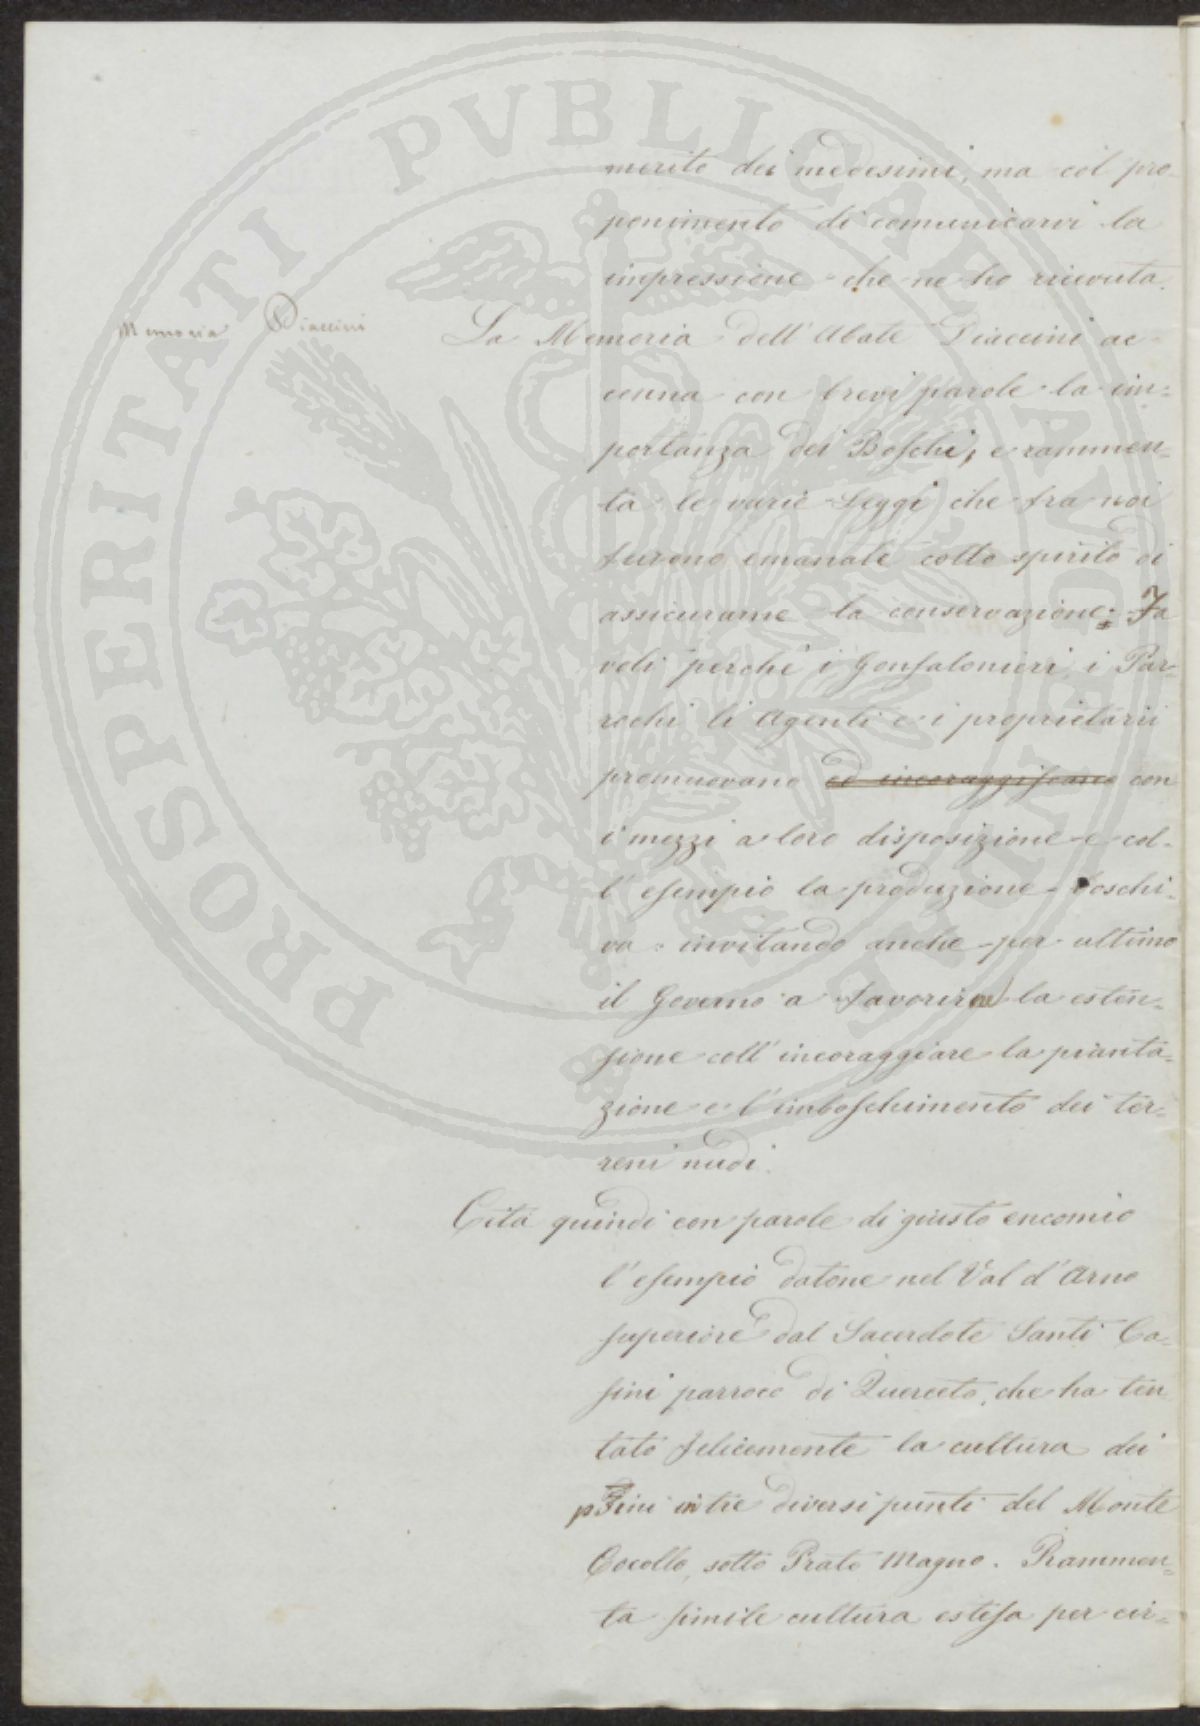 PROSPERITATI PVBLICAE AVGENDAE
merito dei medesimi, ma col pro-
ponimento di comunicarvi la
impressione che ne ho ricevuta.
Memoria Diaccini
La Memoria dell' Abate Diaccini ac-
cenna con brevi parole la im-
portanza dei Boschi, e rammen-
ta le varie Leggi che fra noi
furono emanate collo spirito di
assicurarne la conservazione: Fa
voti perchè i Gonfalonieri, i Par-
rochi li Agenti e i proprietarii
promuovano ed incoraggiscano con
i mezzi a loro disposizione e col-
l' esempio la produzione boschi-
va: invitando anche per ultimo
il Governo a favorirne la esten-
sione coll' incoraggiare la pianta-
zione e l' imboschimento dei ter-
reni nudi.
Cita quindi con parole di giusto encomio
l' esempio datone nel Val d' Arno
superiore dal Sacerdote Santi Ca-
sini parroco di Querceto, che ha ten
tato felicemente la cultura dei
pini in tre diversi punti del Monte
Cocollo, sotto Prato Magno. Rammen-
ta simile cultura estesa per cir-